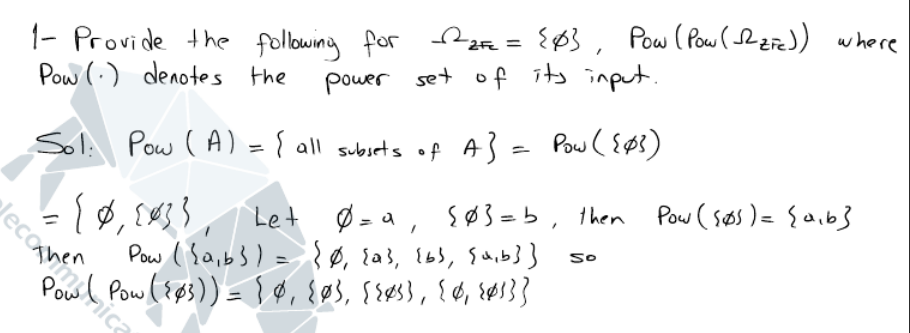 1- Provide the following for Ω_ZFC = {ø}, Pow(Pow(Ω_ZFC)) where
Pow(·) denotes the power set of its input.
Sol: Pow(A) = {all subsets of A} = Pow({ø})
= {ø, {ø}}, Let ø=a, {ø}=b, then Pow({ø})={a,b}
Then Pow({a,b}) = {ø, {a}, {b}, {a,b}} so
Pow(Pow({ø})) = {ø, {ø}, {{ø}}, {ø, {ø}}}